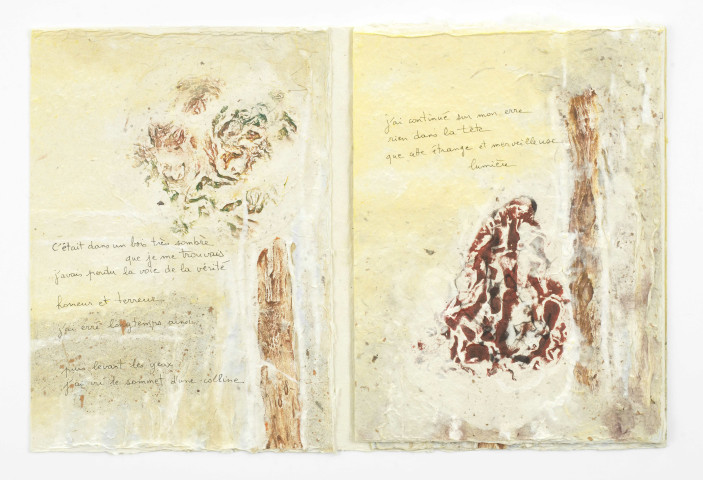 C'était dans un bois très sombre
que je me trouvais
j'avais perdu la voie de la vérité
horreur et terreur
j'ai erré longtemps ainsi,
puis levant les yeux
j'ai vu le sommet d'une colline
j'ai continué sur mon erre
rien dans la tête
que cette étrange et merveilleuse
lumière